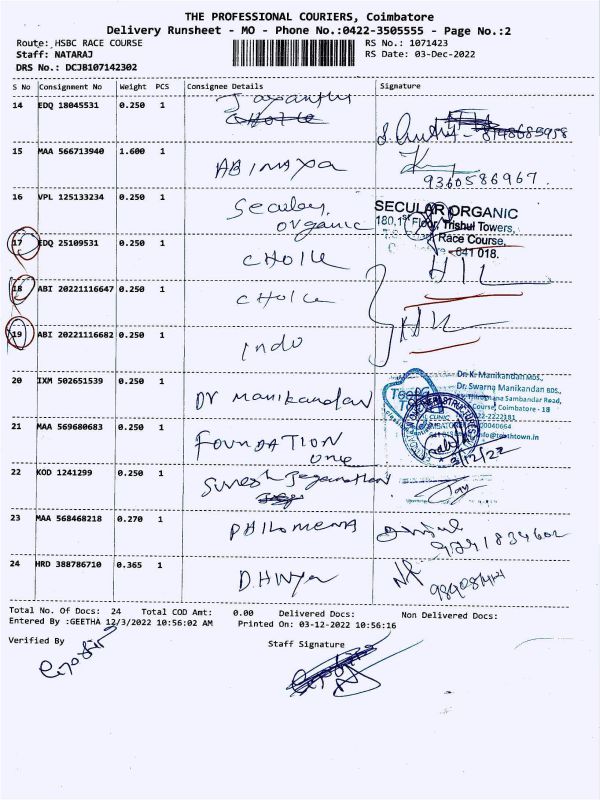 THE PROFESSIONAL COURIERS, Coimbatore
Delivery Runsheet - MO - Phone No.:0422-3505555 - Page No.:2
Route: HSBC RACE COURSE
RS No.: 1071423
Staff: NATARAJ
RS Date: 03-Dec-2022
DRS No.: DCJB107142302
S No Consignment No Weight PCS Consignee Details Signature
14 EDQ 18045531 0.250 1
15 MAA 566713940 1.600 1 ABINAYA
9360586967.
16 VPL 125133234 0.250 1 Secular organic
SECULAR ORGANIC
180,1st Floor, Trishul Towers,
Race Course,
641 018.
17 EDQ 25109531 0.250 1 CHOICE
18 ABI 20221116647 0.250 1 CHOICE
19 ABI 20221116682 0.250 1 indo
20 IXM 502651539 0.250 1 Dr manikandan
Dr. K. Manikandan MDS.,
Dr. Swarna Manikandan BDS.,
Course, Coimbatore - 18
21 MAA 569680683 0.250 1 FOUNDATION one
3/12/22
22 KOD 1241299 0.250 1 Suresh Jeganathan
23 MAA 568468218 0.270 1 PHILOMENA
24 HRD 388786710 0.365 1 DHIVYA
Total No. Of Docs: 24 Total COD Amt: 0.00 Delivered Docs: Non Delivered Docs:
Entered By :GEETHA 12/3/2022 10:56:02 AM Printed On: 03-12-2022 10:56:16
Verified By Staff Signature